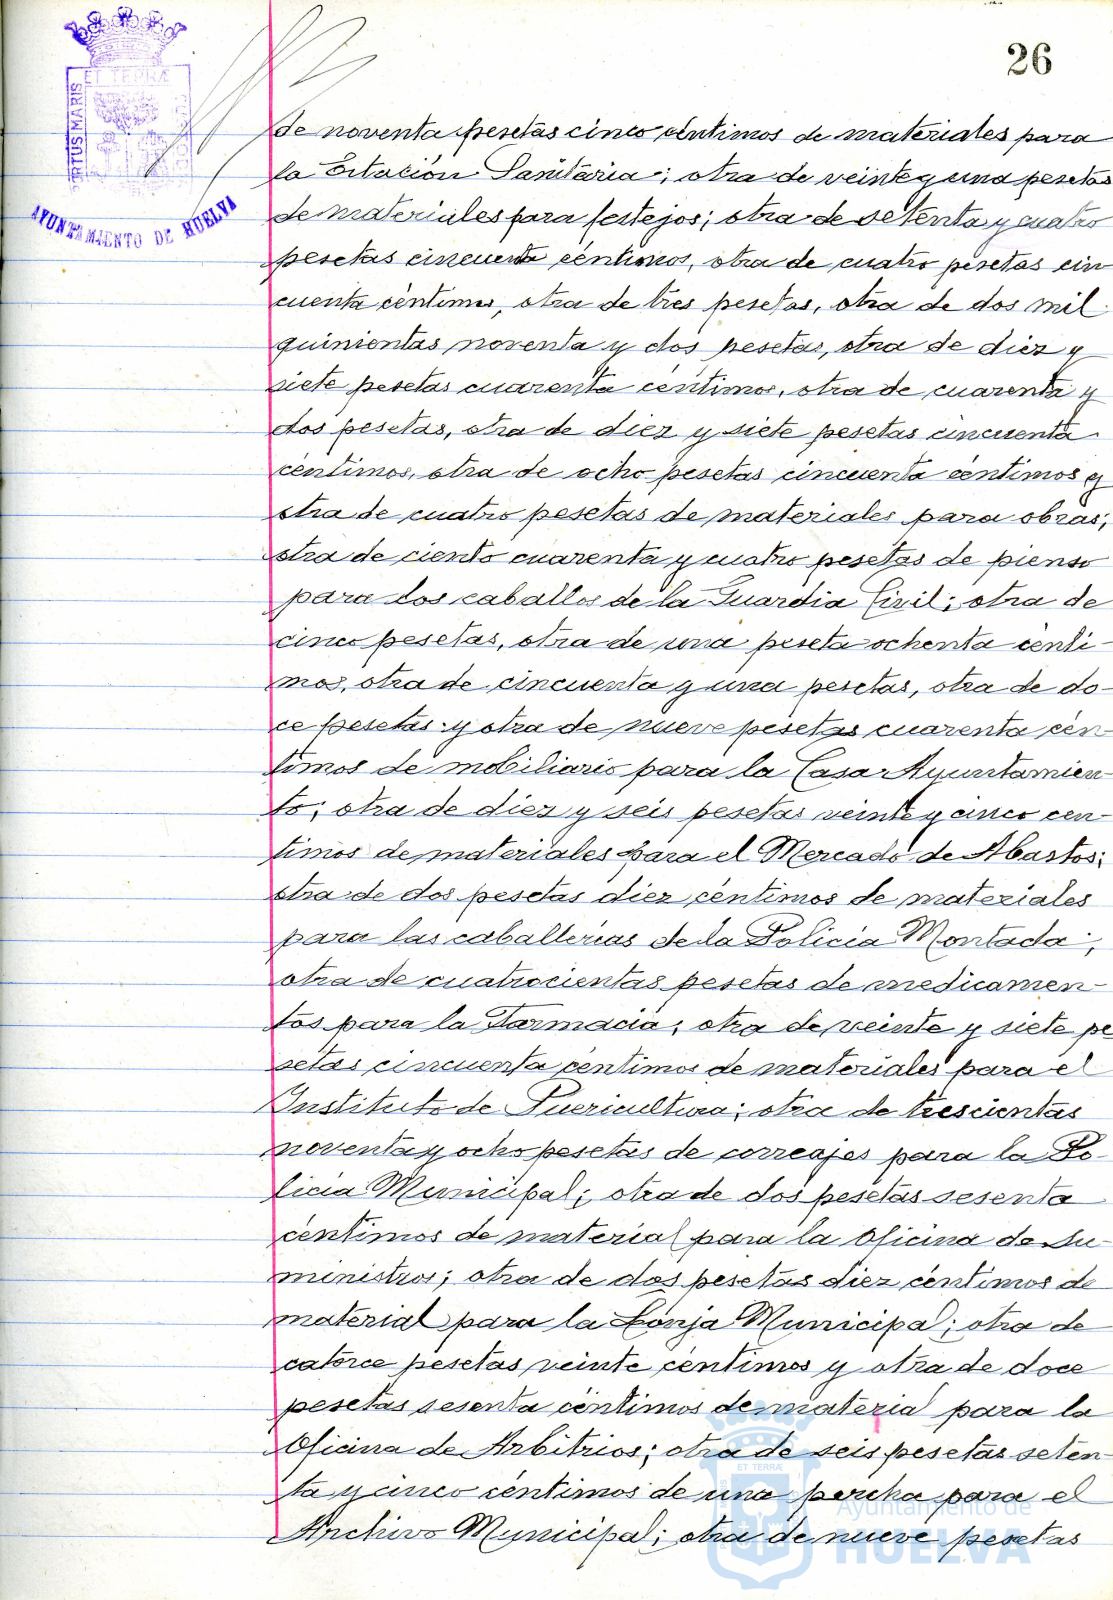 26
ET TERRÆ
PORTUS MARIS
AYUNTAMIENTO DE HUELVA
de noventa pesetas cinco céntimos de materiales para
la Estación Sanitaria; otra de veinte y una pesetas
de materiales para festejos; otra de setenta y cuatro
pesetas cincuenta céntimos, otra de cuatro pesetas cin
cuenta céntimos, otra de tres pesetas, otra de dos mil
quinientas noventa y dos pesetas, otra de diez y
siete pesetas cuarenta céntimos, otra de cuarenta y
dos pesetas, otra de diez y siete pesetas cincuenta
céntimos, otra de ocho pesetas cincuenta céntimos y
otra de cuatro pesetas de materiales para obras;
otra de ciento cuarenta y cuatro pesetas de pienso
para los caballos de la Guardia Civil; otra de
cinco pesetas, otra de una peseta ochenta cénti-
mos, otra de cincuenta y una pesetas, otra de do-
ce pesetas y otra de nueve pesetas cuarenta cén-
timos de mobiliario para la Casa Ayuntamien-
to; otra de diez y seis pesetas veinte y cinco cen-
timos de materiales para el Mercado de Abastos;
otra de dos pesetas diez céntimos de materiales
para las caballerias de la Policia Montada;
otra de cuatrocientas pesetas de medicamen-
tos para la Farmacia; otra de veinte y siete pe
setas cincuenta céntimos de materiales para el
Instituto de Puericultura; otra de trescientas
noventa y ocho pesetas de correajes para la Po-
licia Municipal; otra de dos pesetas sesenta
céntimos de material para la Oficina de Su-
ministros; otra de dos pesetas diez céntimos de
material para la Lonja Municipal; otra de
catorce pesetas veinte céntimos y otra de doce
pesetas sesenta céntimos de material para la
Oficina de Arbitrios; otra de seis pesetas seten-
ta y cinco céntimos de una percha para el
Archivo Municipal; otra de nueve pesetas
ET TERRÆ
Ayuntamiento de
HUELVA